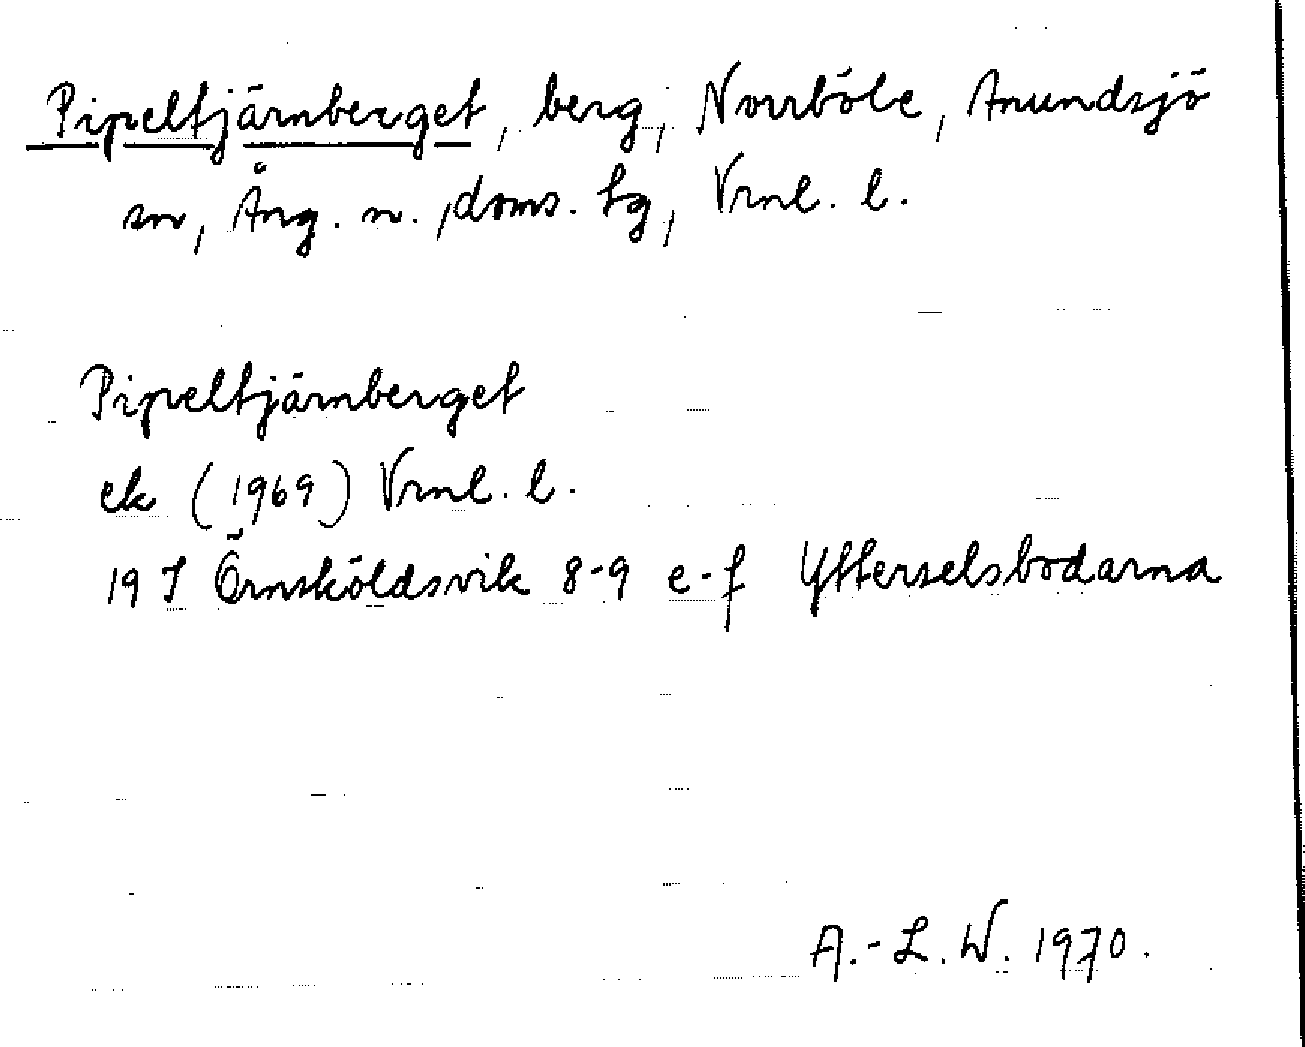 Pipeltjärnberget, berg, Norrböle, Anundsjö
sn, Ång. n., doms. tg, Vrnl. l.
Pipeltjärnberget
ek (1969) Vrnl. l.
19 I Örnsköldsvik 8-9 e-f Ytterselsbodarna
A.-L. W. 1970.